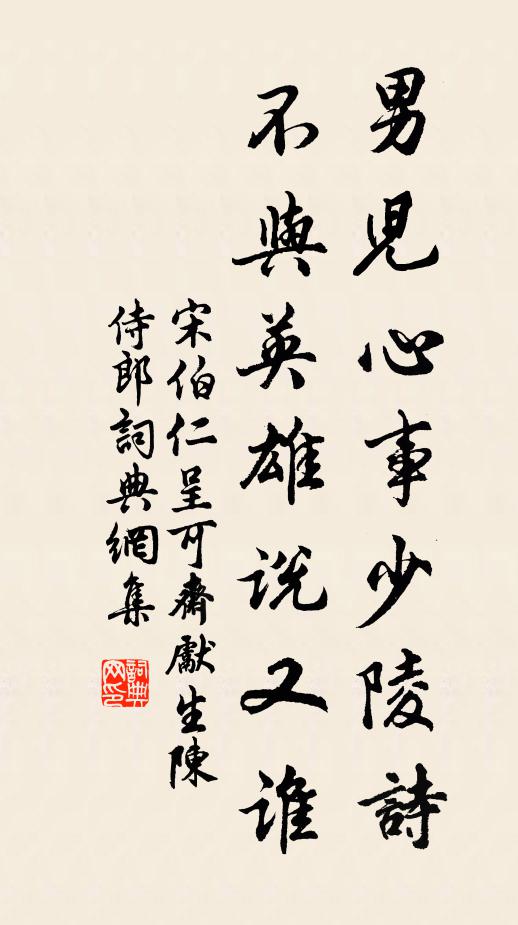 男児心事少陵詩
不與英雄說又誰
宋伯仁呈可齋獻生陳
侍郎詞典網集
詞典
网印